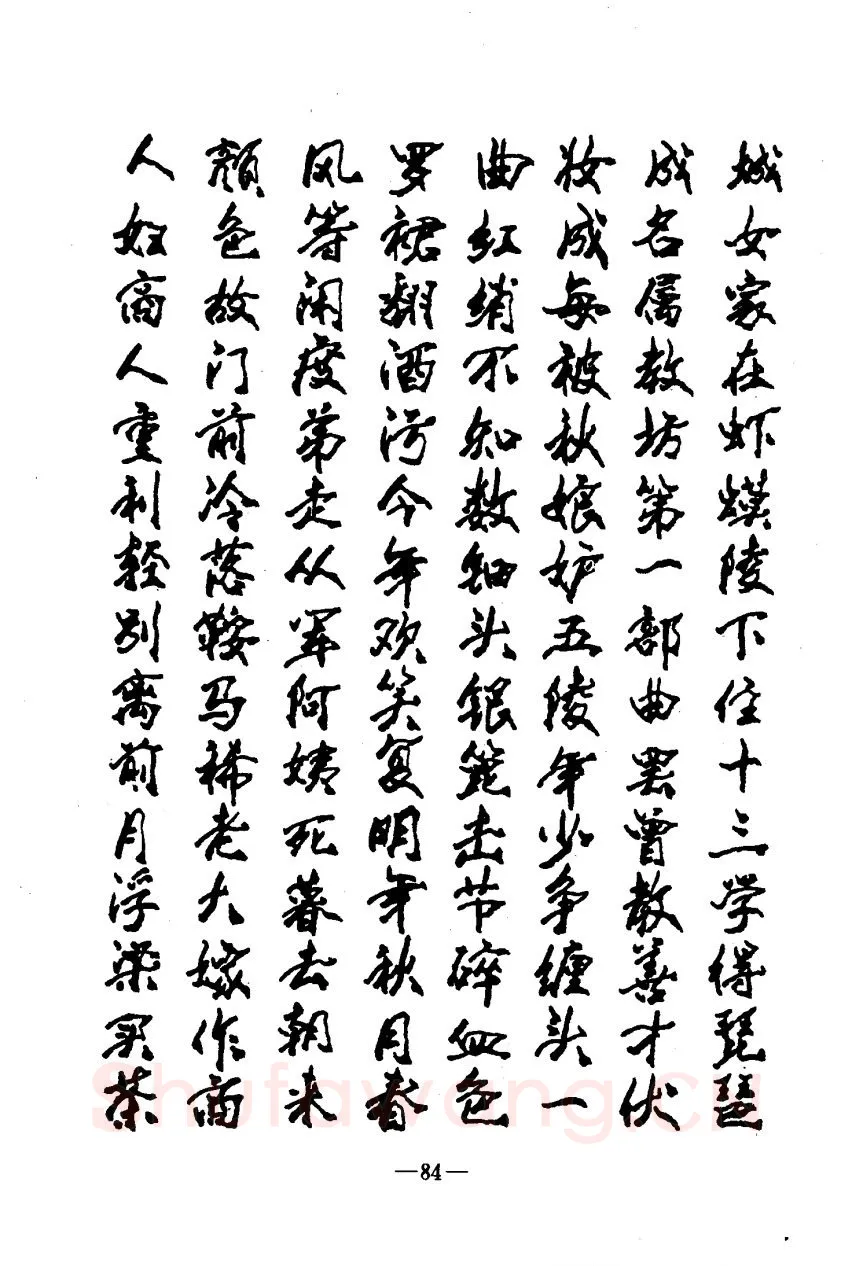 城女家在虾蟆陵下住十三学得琵琶
成名属教坊第一部曲罢曾教善才伏
妆成每被秋娘妒五陵年少争缠头一
曲红绡不知数钿头银篦击节碎血色
罗裙翻酒污今年欢笑复明年秋月春
风等闲度弟走从军阿姨死暮去朝来
颜色故门前冷落鞍马稀老大嫁作商
人妇商人重利轻别离前月浮梁买茶
—84—
Shufawang.cn